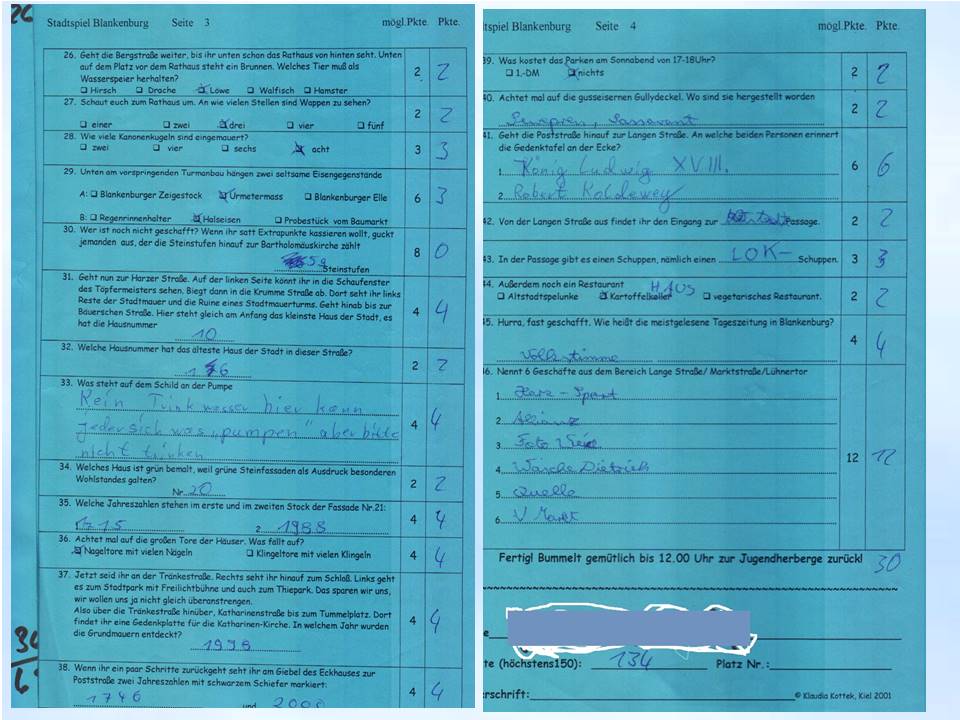 26
Stadtspiel Blankenburg Seite 3 mögl.Pkte. Pkte.
26. Geht die Bergstraße weiter, bis ihr unten schon das Rathaus von hinten seht. Unten
auf dem Platz vor dem Rathaus steht ein Brunnen. Welches Tier muß als
Wasserspeier herhalten?
Hirsch Drache Löwe Walfisch Hamster
2 2
27. Schaut euch zum Rathaus um. An wie vielen Stellen sind Wappen zu sehen?
einer zwei drei vier fünf
2 2
28. Wie viele Kanonenkugeln sind eingemauert?
zwei vier sechs acht
3 3
29. Unten am vorspringenden Turmanbau hängen zwei seltsame Eisengegenstände
A: Blankenburger Zeigestock Urmetermass Blankenburger Elle
B: Regenrinnenhalter Halseisen Probestück vom Baumarkt
6 3
30. Wer ist noch nicht geschafft? Wenn ihr satt Extrapunkte kassieren wollt, guckt
jemanden aus, der die Steinstufen hinauf zur Bartholomäuskirche zählt
59 Steinstufen
8 0
31. Geht nun zur Harzer Straße. Auf der linken Seite könnt ihr in die Schaufenster
des Töpfermeisters sehen. Biegt dann in die Krumme Straße ab. Dort seht ihr links
Reste der Stadtmauer und die Ruine eines Stadtmauerturms. Geht hinab bis zur
Bäuerschen Straße. Hier steht gleich am Anfang das kleinste Haus der Stadt, es
hat die Hausnummer
10
4 4
32. Welche Hausnummer hat das älteste Haus der Stadt in dieser Straße?
2 2
33. Was steht auf dem Schild an der Pumpe
Rein Trinkwasser hier kann
jeder sich was „pumpen" aber bitte
nicht trinken
4 4
34. Welches Haus ist grün bemalt, weil grüne Steinfassaden als Ausdruck besonderen
Wohlstandes galten?
Nr. 20
2 2
35. Welche Jahreszahlen stehen im erste und im zweiten Stock der Fassade Nr.21:
1715 2. 1988
4 4
36. Achtet mal auf die großen Tore der Häuser. Was fällt auf?
Nageltore mit vielen Nägeln Klingeltore mit vielen Klingeln
4 4
37. Jetzt seid ihr an der Tränkestraße. Rechts seht ihr hinauf zum Schloß. Links geht
es zum Stadtpark mit Freilichtbühne und auch zum Thiepark. Das sparen wir uns,
wir wollen uns ja nicht gleich überanstrengen.
Also über die Tränkestraße hinüber, Katharinenstraße bis zum Tummelplatz. Dort
findet ihr eine Gedenkplatte für die Katharinen-Kirche. In welchem Jahr wurden
die Grundmauern entdeckt?
1998
4 4
38. Wenn ihr ein paar Schritte zurückgeht seht ihr am Giebel des Eckhauses zur
Poststraße zwei Jahreszahlen mit schwarzem Schiefer markiert:
1746 und 2000
4 4
tspiel Blankenburg Seite 4 mögl.Pkte. Pkte.
39. Was kostet das Parken am Sonnabend von 17-18Uhr?
1.-DM nichts
2 2
40. Achtet mal auf die gusseisernen Gullydeckel. Wo sind sie hergestellt worden
2 2
41. Geht die Poststraße hinauf zur Langen Straße. An welche beiden Personen erinnert
die Gedenktafel an der Ecke?
1. König Ludwig XVIII.
2. Robert Koldewey
6 6
42. Von der Langen Straße aus findet ihr den Eingang zur Passage.
2 2
43. In der Passage gibt es einen Schuppen, nämlich einen LOK- Schuppen.
3 3
44. Außerdem noch ein Restaurant
Altstadtspelunke Kartoffelkeller HAUS vegetarisches Restaurant.
2 2
45. Hurra, fast geschafft. Wie heißt die meistgelesene Tageszeitung in Blankenburg?
Volksstimme
4 4
46. Nennt 6 Geschäfte aus dem Bereich Lange Straße/ Marktstraße/Lühnertor
1. Harz - Sport
2. Allianz
3. Foto
4. Wäsche Dietrich
5. Quelle
6. V Markt
12 12
Fertig! Bummelt gemütlich bis 12.00 Uhr zur Jugendherberge zurück!
30
e
te (höchstens150): 134 Platz Nr.:
erschrift:
© Klaudia Kottek, Kiel 2001